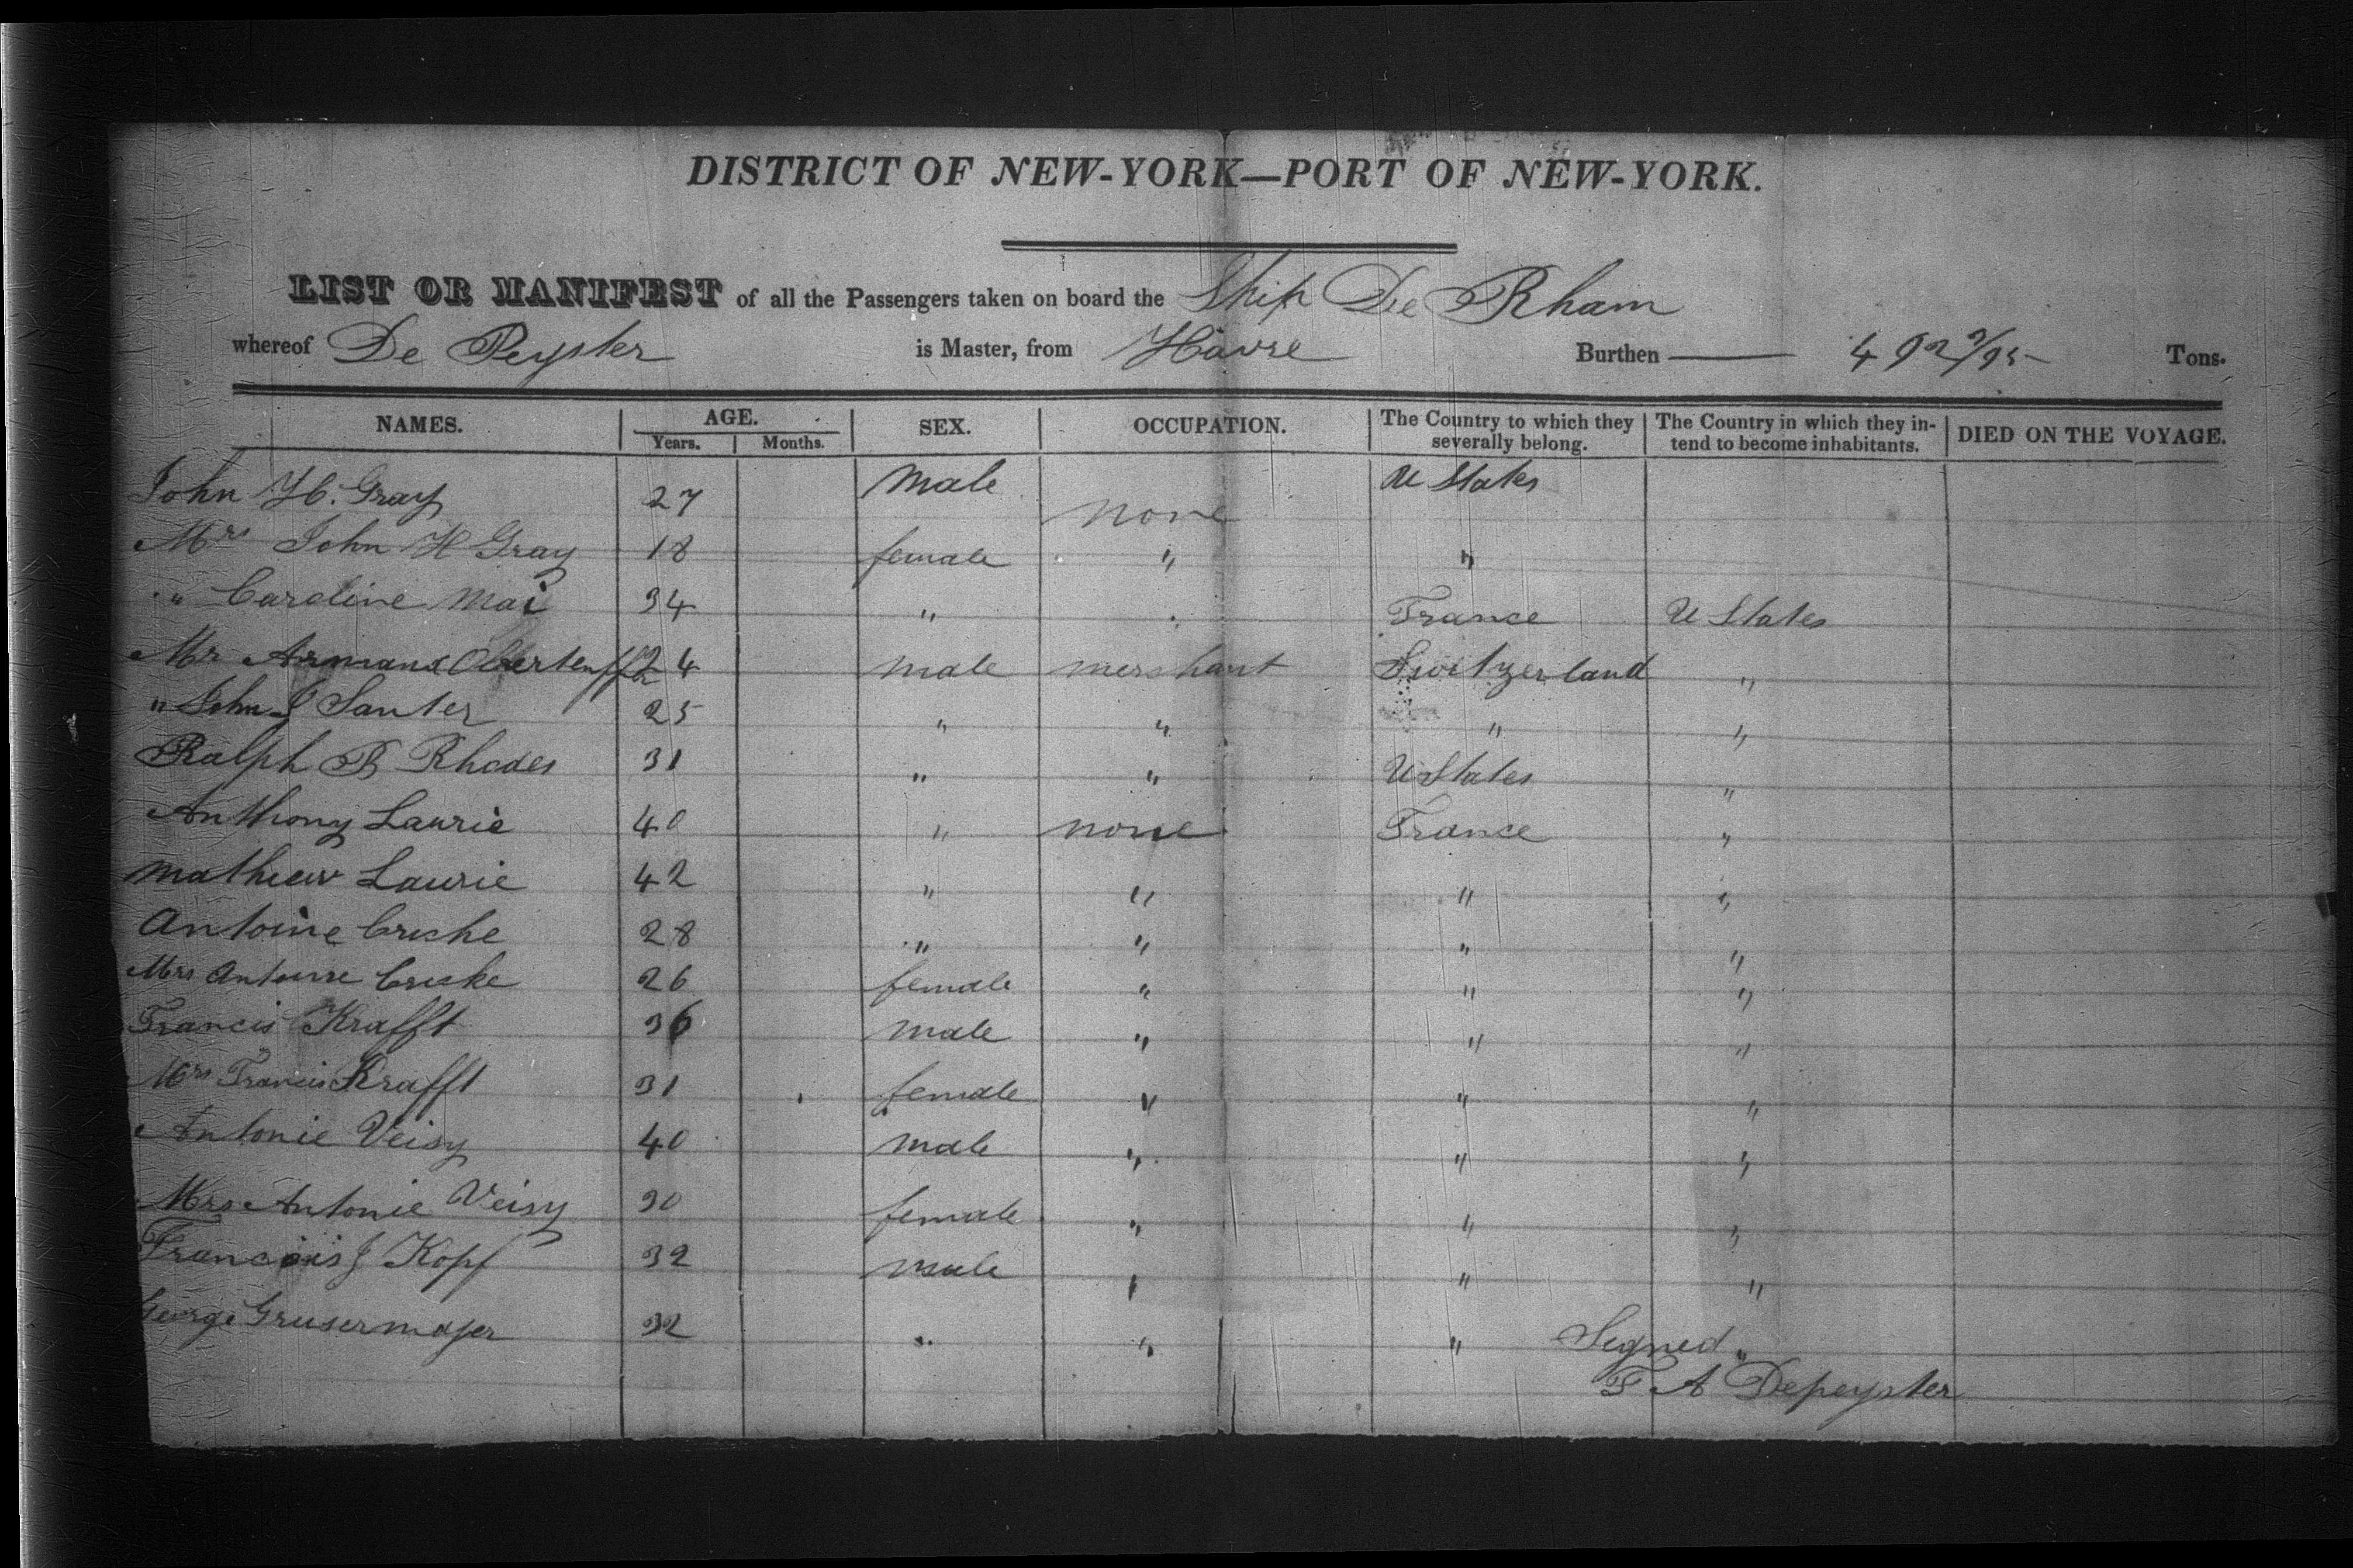 DISTRICT OF NEW-YORK—PORT OF NEW-YORK.
LIST OR MANIFEST of all the Passengers taken on board the Ship De Rham
whereof De Peyster is Master, from Havre Burthen 492 2/95 Tons.
NAMES. AGE. SEX. OCCUPATION. The Country to which they severally belong. The Country in which they intend to become inhabitants. DIED ON THE VOYAGE.
Years. Months.
John H. Gray 27 male none U States
Mrs John H Gray 18 female " "
" Caroline Mai 34 " " France U States
Mr Armand 24 male merchant Switzerland "
" John J Santer 25 " " " "
Ralph B Rhodes 31 " " U States "
Anthony Laurie 40 " none France "
Mathew Laurie 42 " " " "
Antoine 28 " " " "
Mrs Antoine 26 female " " "
Francis Krafft 36 male " " "
Mrs Francis Krafft 31 female " " "
Antonie Veisy 40 male " " "
Mrs Antonie Veisy 30 female " " "
Francois J Kopf 32 male " " "
George Grusermajer 32 " " " "
Signed
F A Depeyster